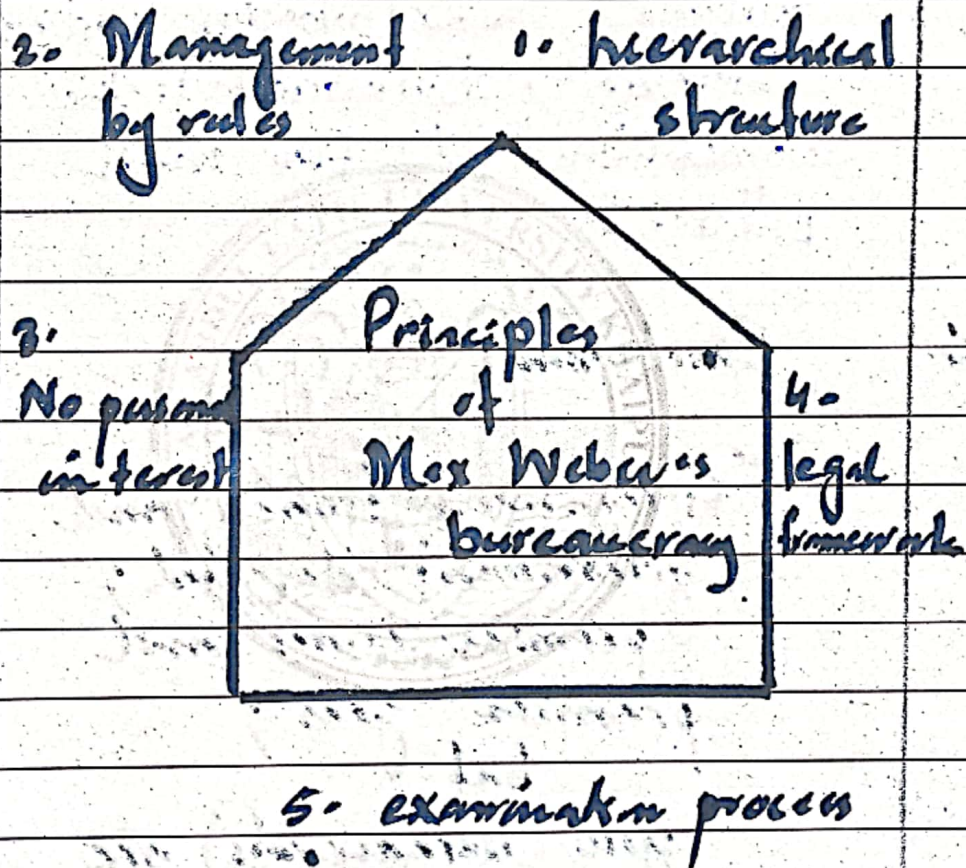 2. Management
by rules
1. hierarchical
structure
3.
No personal
interest
Principles
of
Max Weber's
bureaucracy
4.
legal
framework
5. examination process